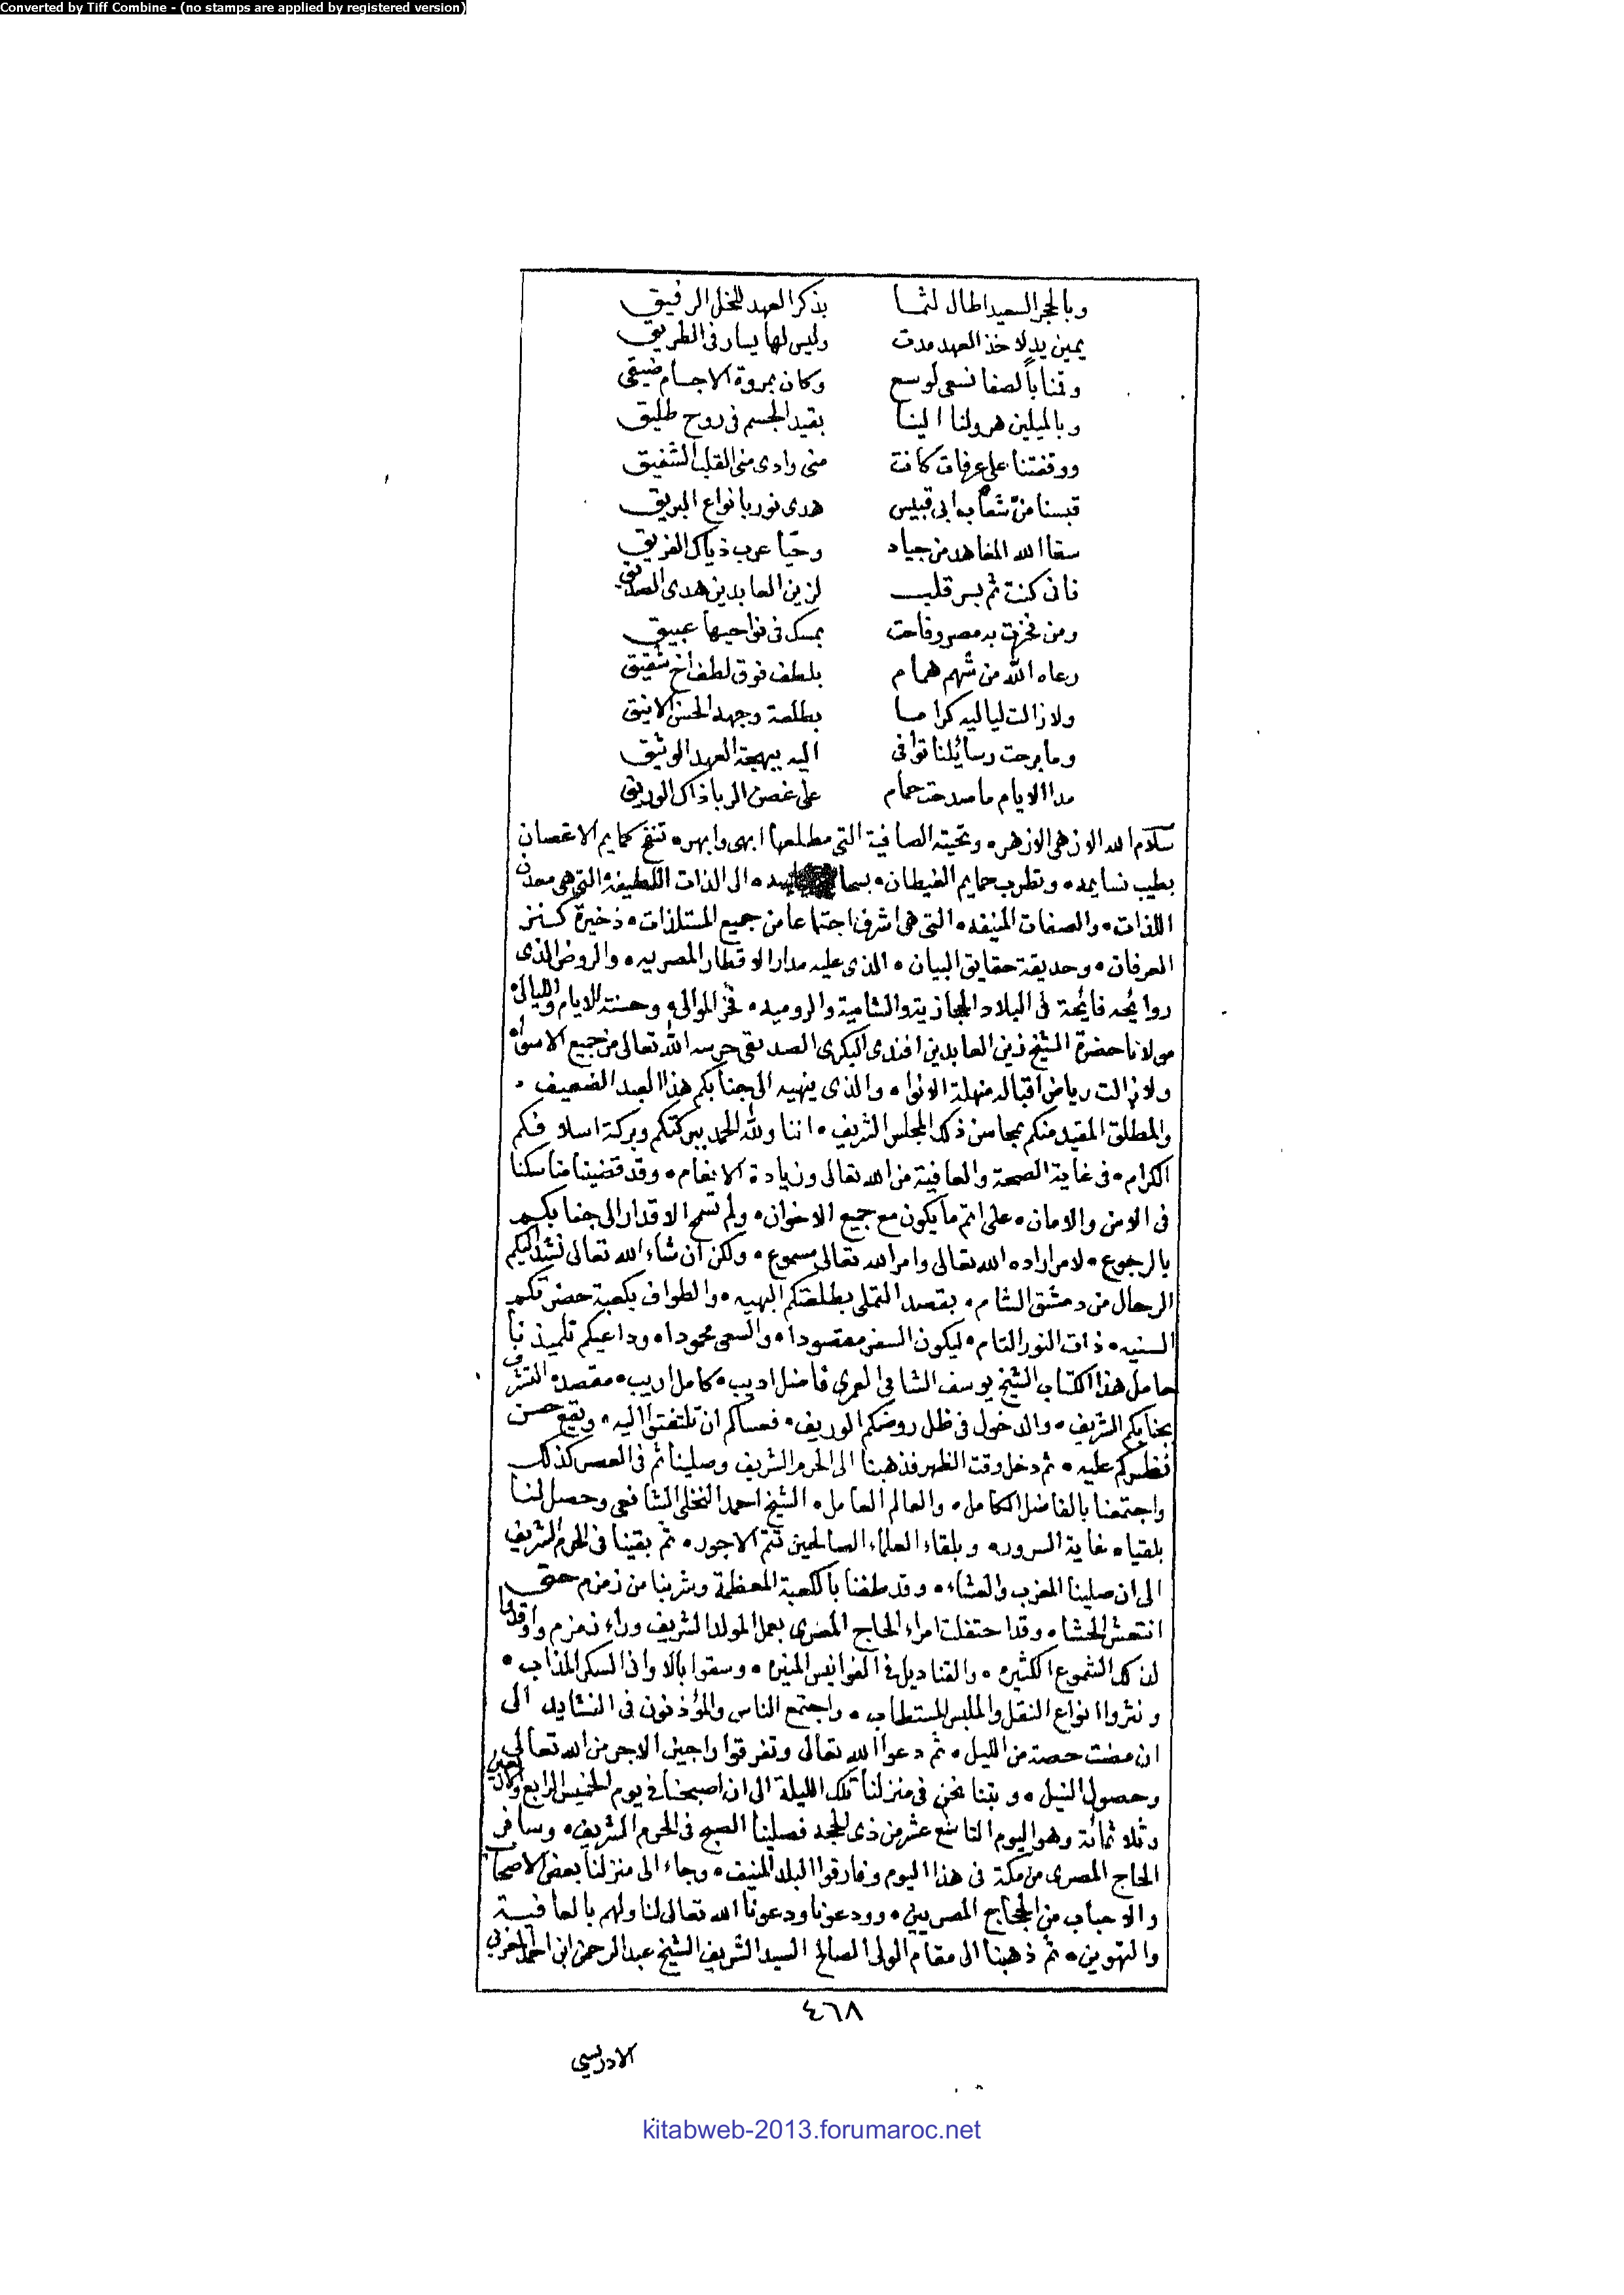 Converted by Tiff Combine - (no stamps are applied by registered version)
وبالحجر السعيد اطال لثما بذكر العهد للخل الرفيق
يمين يد لاخذ العهد مدت وليس لها يسار فى الطريق
وقمنا بالصفا نسعى لوسع وكان بمروة الاجسام ضيقى
وبالميلين هرولنا الينا بقيد الجسم فى روح طليق
ووقفتنا على عرفات كانت منى وادى منى القلب الشفيق
قبسنا من شعاب ابى قبيس هدى نور بانواع البريق
سقا الله المعاهد من جياد وحيا عرب ذياك الفريق
فانى كنت ثم بسر قلب لزين العابدين هدى الصديق
ومن فخرت به مصر وفاحت بمسك فى نواحيها عبيق
رعاه الله من شهم همام بلطف فوق لطف اخ شقيق
ولا زالت لياليه كراما بطلعة وجهه الحسن الانيق
وما برحت رسائلنا توافى اليه ببهجة العهد الوثيق
مدا الايام ما صدحت حمام على غصن الربا ذاك الوريق
سلام الله الازهى الازهر، وتحيته الصافية التى مطلعها ابهى وابهر، تنفح كمايم الاغصان
بطيب نسايمه، وتطرب حمايم الغيطان، الى الذات اللطيفة التى هى معدن
اللذات، والصفات المنيفه، التى هى اشرف اجتماعا من جميع المستلذات، ذخيرة كنز
العرفان، وحديقة حقايق البيان، الذى عليه مدار الاقطار المصريه، والروض الذى
روايحه فايحة فى البلاد الحجازية والشامية والروميه، فخر الموالى، وحسنة الايام والليالى
مولانا حضرة الشيخ زين العابدين افندى البكرى الصديقى حرسه الله تعالى من جميع الاسوا،
ولا زالت رياض اقباله منهلة الانوا، والذى ينهيه الى جنابكم هذا العبد الضعيف،
والمطلق المقيد منكم بمحاسن ذلك المجلس الشريف، اننا ولله الحمد ببركتكم وبركة اسلافكم
الكرام، فى غاية الصحة والعافية من الله تعالى وزيادة الانعام، وقد قضينا مناسكنا
فى الامن والامان، على اتم ما يكون مع جميع الاخوان، ولم تسمح الاقدار الى جنابكم
بالرجوع، لامر اراده الله تعالى وامر الله تعالى مسموع، ولكن ان شاء الله تعالى نشد اليكم
الرحال من دمشق الشام، بقصد التملى بطلعتكم البهيه، والطواف بكعبة حضرتكم
السنيه، ذات النور التام، ليكون السفر مقصودا، والسعى محمودا، وداعيكم تلميذنا
حامل هذا الكتاب الشيخ يوسف الشافى العمرى فاضل اديب، كامل اريب، مقصده التشرف
بجنابكم الشريف، والدخول فى ظل روضكم الوريف، فعساكم ان تلتفتوا اليه، ويقع حسن
نظركم عليه، ثم دخل وقت الظهر فذهبنا الى الحرم الشريف وصلينا ثم فى العصر كذلك
واجتمعنا بالفاضل الكامل، والعالم العامل، الشيخ احمد النخلى الشافعى وحصل لنا
بلقياه غاية السرور، وبلقاء العلماء الصالحين تتم الاجور، ثم بقينا فى الحرم الشريف
الى ان صلينا المغرب والعشاء، وقد طفنا بالكعبة المعظمة وشربنا من زمزم حتى
انتعش الحشا، وقد احتفلت امراء الحاج المصرى بعمل المولد الشريف وراء زمزم واوقدوا
لذلك الشموع الكثيره، والقناديل فى الفوانيس المنيره، وسقوا بالاوانى السكر المذاب،
ونثروا انواع النقل والملبس المستطاب، واجتمع الناس والمؤذنون فى النشايد الى
ان مضت حصة من الليل، ثم دعوا الله تعالى وتفرقوا راجين الاجر من الله تعالى
وحصول النيل، وبتنا نحن فى منزلنا تلك الليلة الى ان اصبحنا فى يوم الخميس الرابع والاربعين
وثلاثمائة وهو اليوم التاسع عشر من ذى الحجه فصلينا الصبح فى الحرم الشريف، وسافر
الحاج المصرى من مكة فى هذا اليوم وفارقوا البلد المنيف، وجاء الى منزلنا بعض الاصحاب
والاحباب من الحجاج المصريين، وودعونا ودعونا الله تعالى لنا ولهم بالعافية
والتهوين، ثم ذهبنا الى مقام الولى الصالح السيد الشريف الشيخ عبد الرحمن ابن احمد المغربى
٤٦٨
الادريسى
kitabweb-2013.forumaroc.net